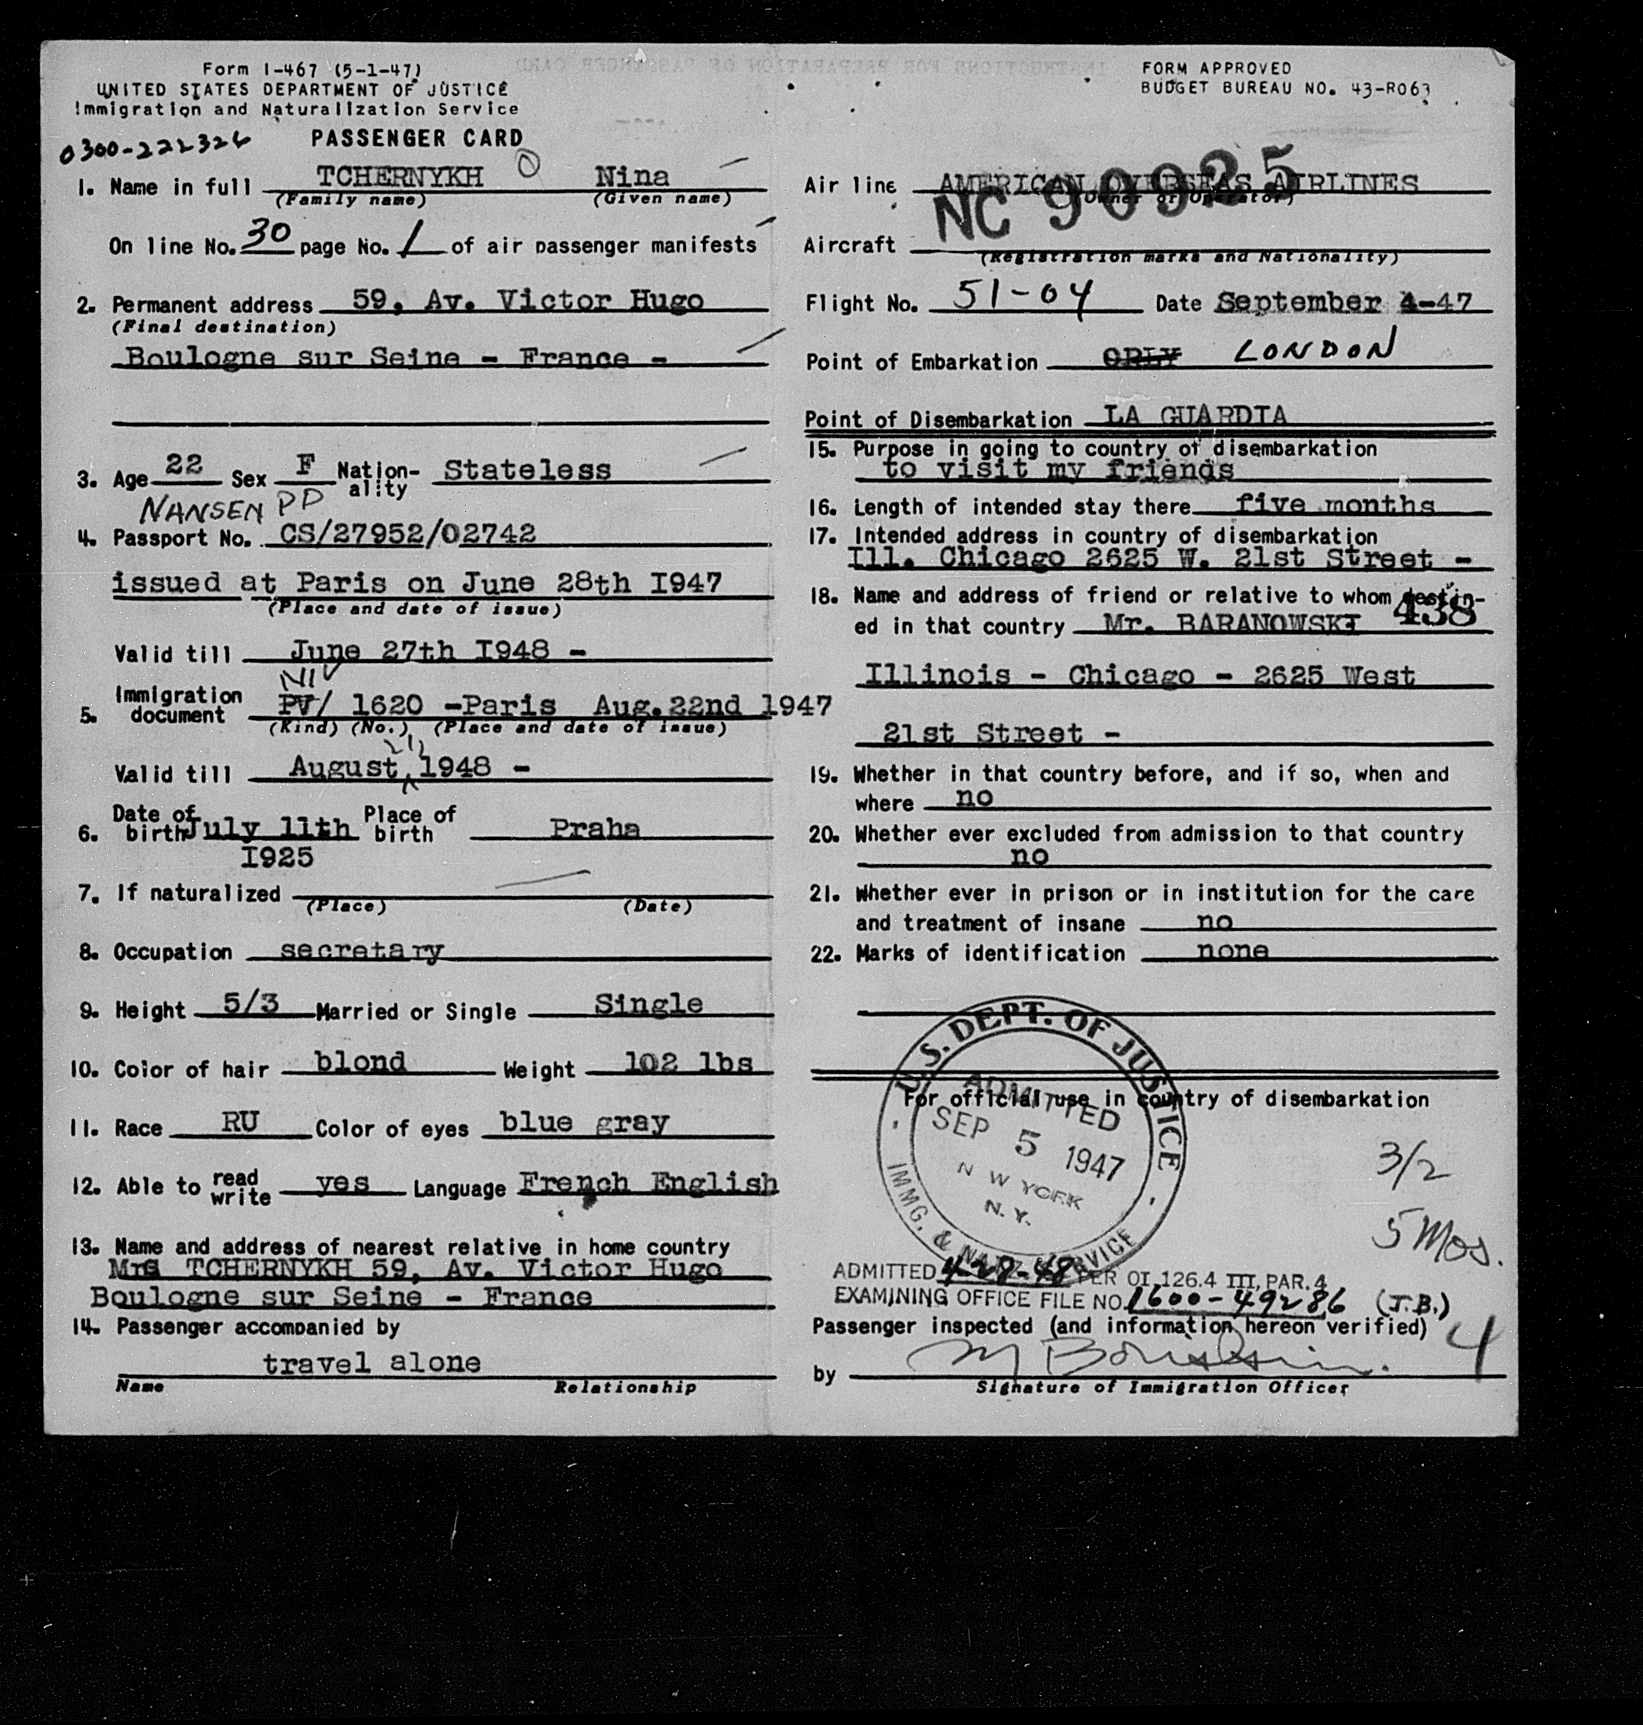 Form I-467 (5-1-47)
UNITED STATES DEPARTMENT OF JUSTICE
Immigration and Naturalization Service
0300-222326
PASSENGER CARD
1. Name in full TCHERNYKH Nina
(Family name) (Given name)
On line No. 30 page No. 1 of air passenger manifests
2. Permanent address 59, Av. Victor Hugo
(Final destination)
Boulogne sur Seine - France -
3. Age 22 Sex F Nation-ality Stateless
NANSEN PP
4. Passport No. CS/27952/02742
issued at Paris on June 28th I947
(Place and date of issue)
Valid till June 27th I948 -
NIV
5. Immigration document PV/ 1620 -Paris Aug.22nd 1947
(Kind) (No.) (Place and date of issue)
Valid till August 1948 -
6. Date of birth July 11th Place of birth Praha
I925
7. If naturalized
(Place) (Date)
8. Occupation secretary
9. Height 5/3 Married or Single Single
10. Color of hair blond Weight 102 lbs
11. Race RU Color of eyes blue gray
12. Able to read write yes Language French English
13. Name and address of nearest relative in home country
Mrs TCHERNYKH 59, Av. Victor Hugo
Boulogne sur Seine - France
14. Passenger accompanied by
travel alone
Name Relationship
FORM APPROVED
BUDGET BUREAU NO. 43-R063
Air line AMERICAN OVERSEAS AIRLINES
(Owner or Operator)
NC 90925
Aircraft
(Registration marks and Nationality)
Flight No. 51-04 Date September 4-47
Point of Embarkation ORLY LONDON
Point of Disembarkation LA GUARDIA
15. Purpose in going to country of disembarkation
to visit my friends
16. Length of intended stay there five months
17. Intended address in country of disembarkation
Ill. Chicago 2625 W. 21st Street -
18. Name and address of friend or relative to whom destin-
ed in that country Mr. BARANOWSKI 438
Illinois - Chicago - 2625 West
21st Street -
19. Whether in that country before, and if so, when and
where no
20. Whether ever excluded from admission to that country
no
21. Whether ever in prison or in institution for the care
and treatment of insane no
22. Marks of identification none
U.S. DEPT. OF JUSTICE
For official use in country of disembarkation
ADMITTED
SEP 5 1947
N W YORK
N.Y.
IMMG. & NATZ. SERVICE
3/2
5 Mos.
ADMITTED 4-28-48 PER OI 126.4 III, PAR. 4
EXAMINING OFFICE FILE NO. 1600-49286 (J.B.)
Passenger inspected (and information hereon verified) 4
by
Signature of Immigration Officer